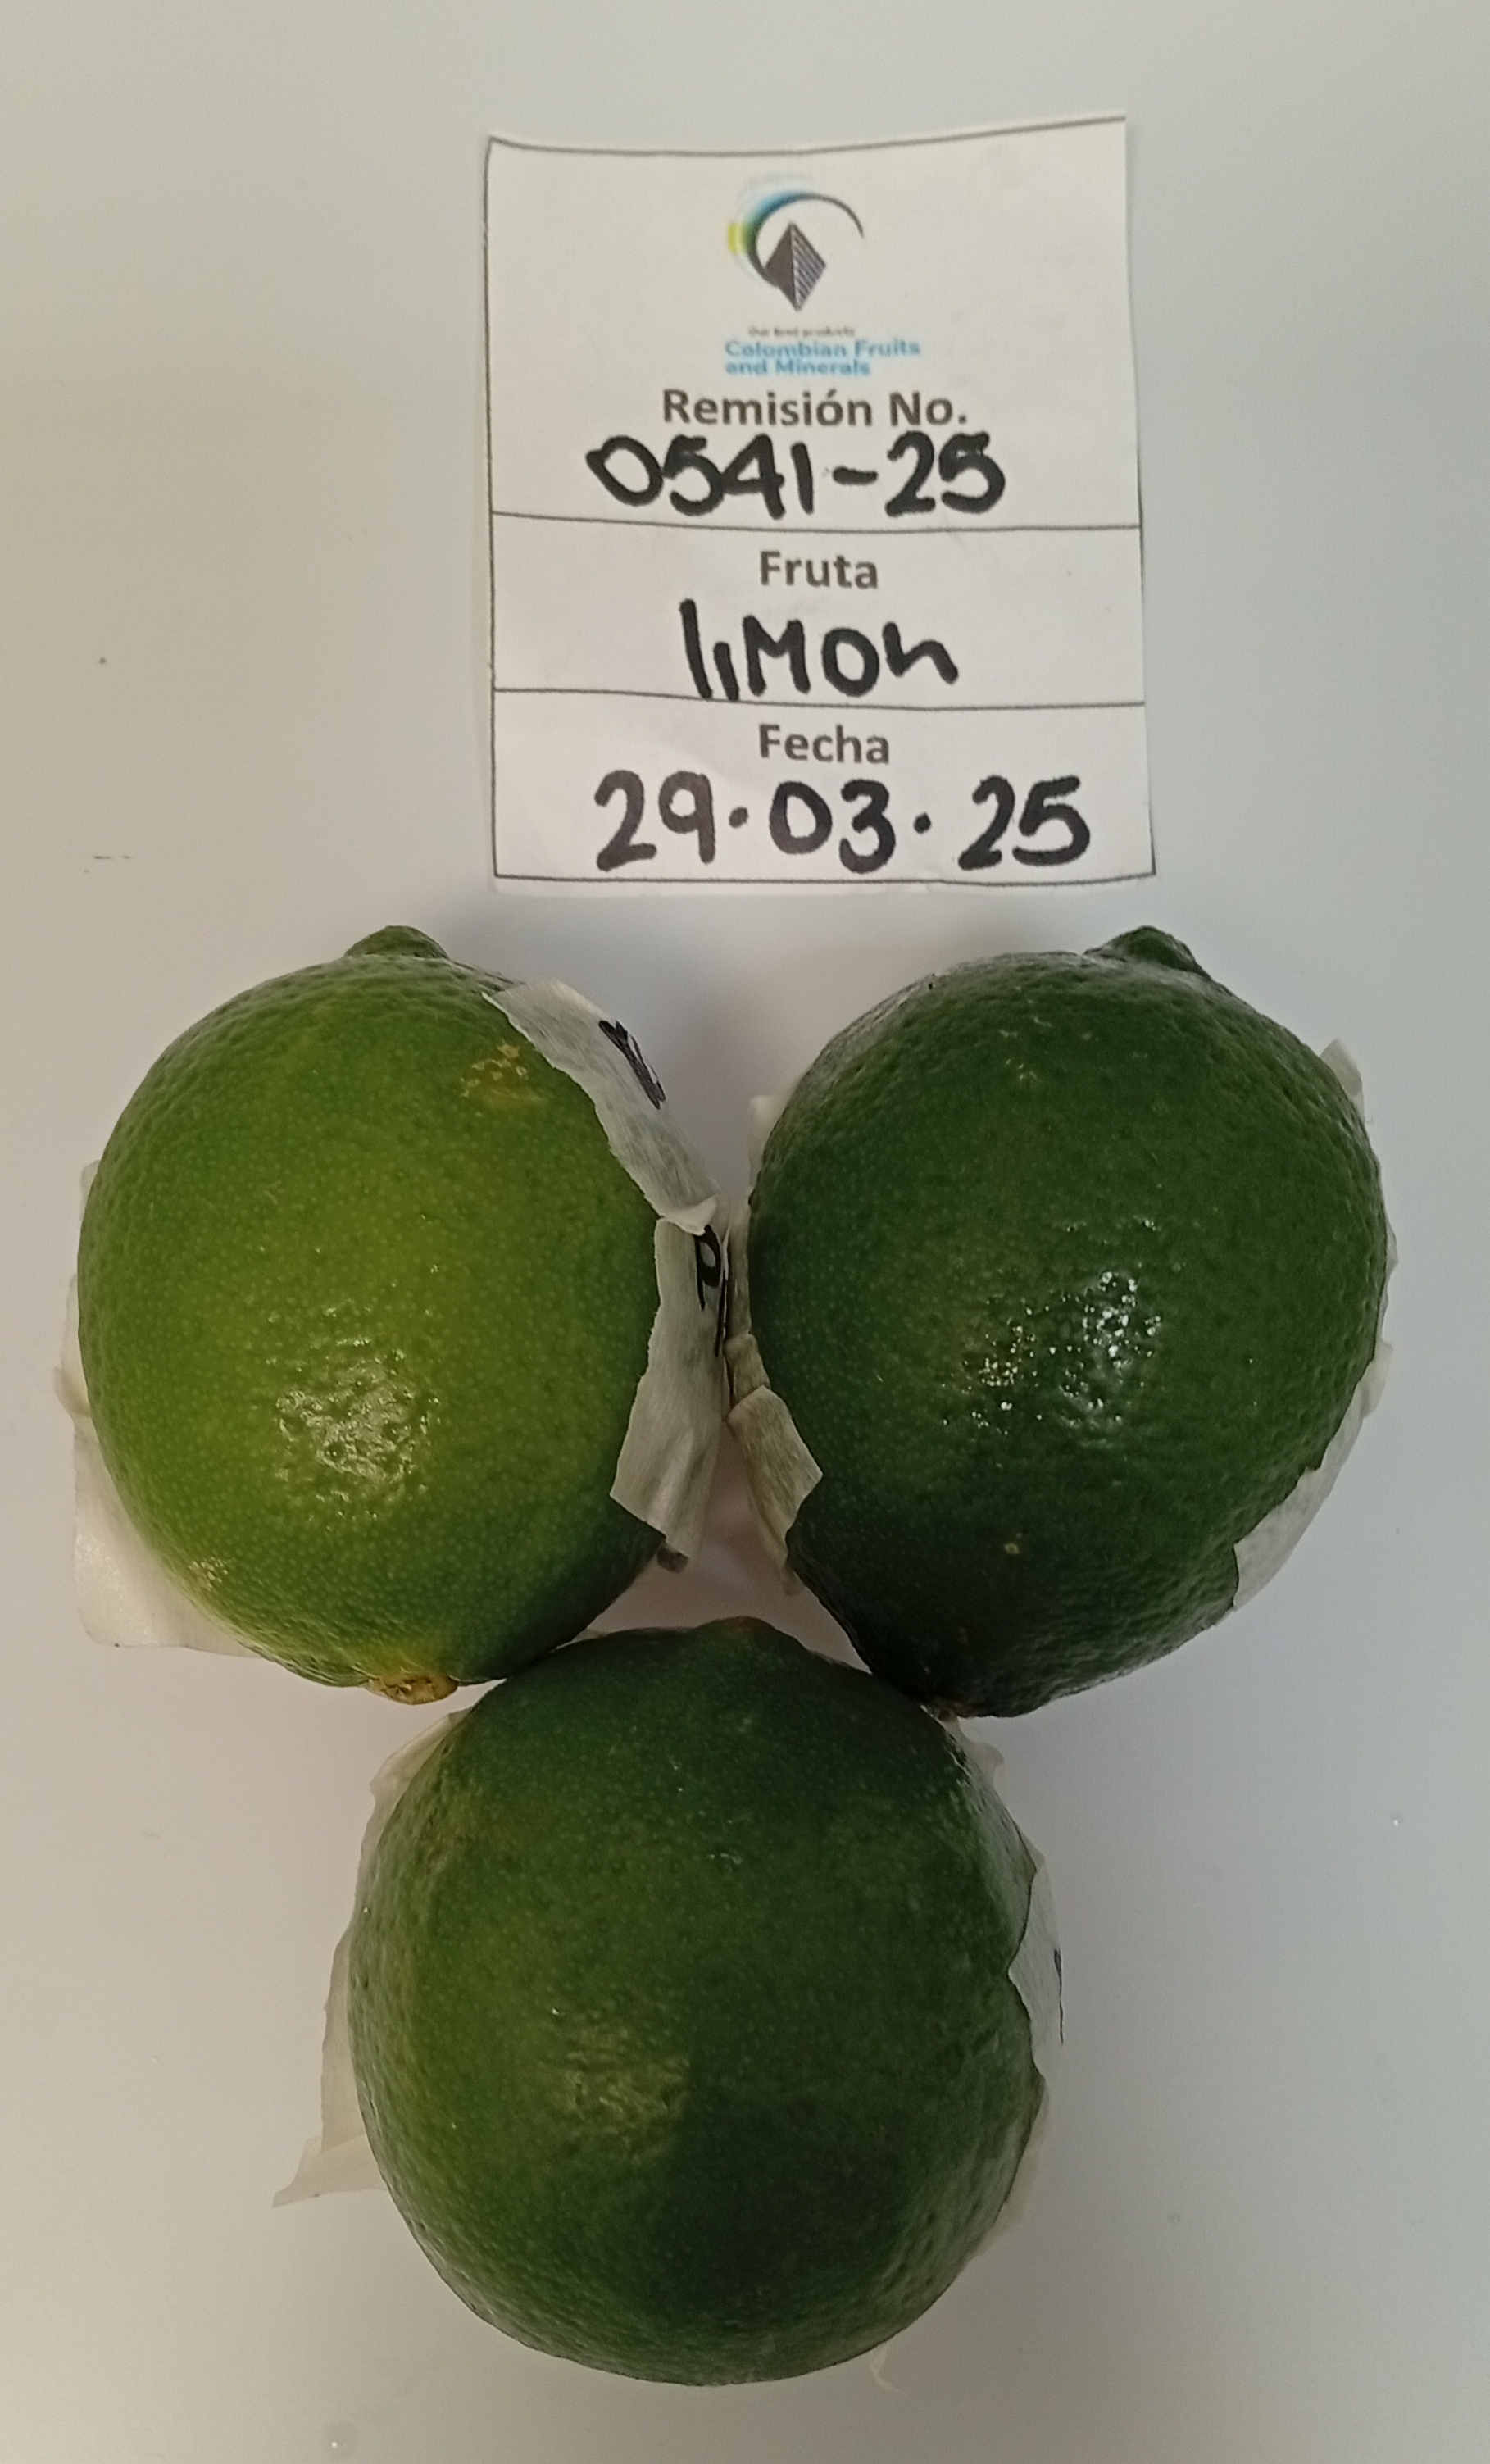 Our best products
Colombian Fruits
and Minerals
Remisión No.
0541-25
Fruta
liMon
Fecha
29.03.25